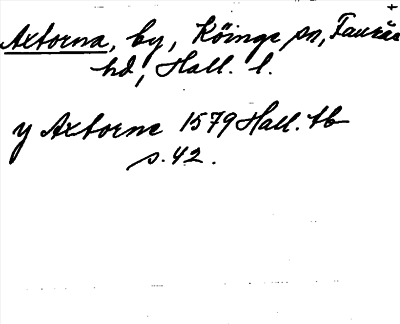 Axtorna, by, Köinge sn, Faurås
hd, Hall. l.
y Axtorne 1579 Hall. tb
s. 42.